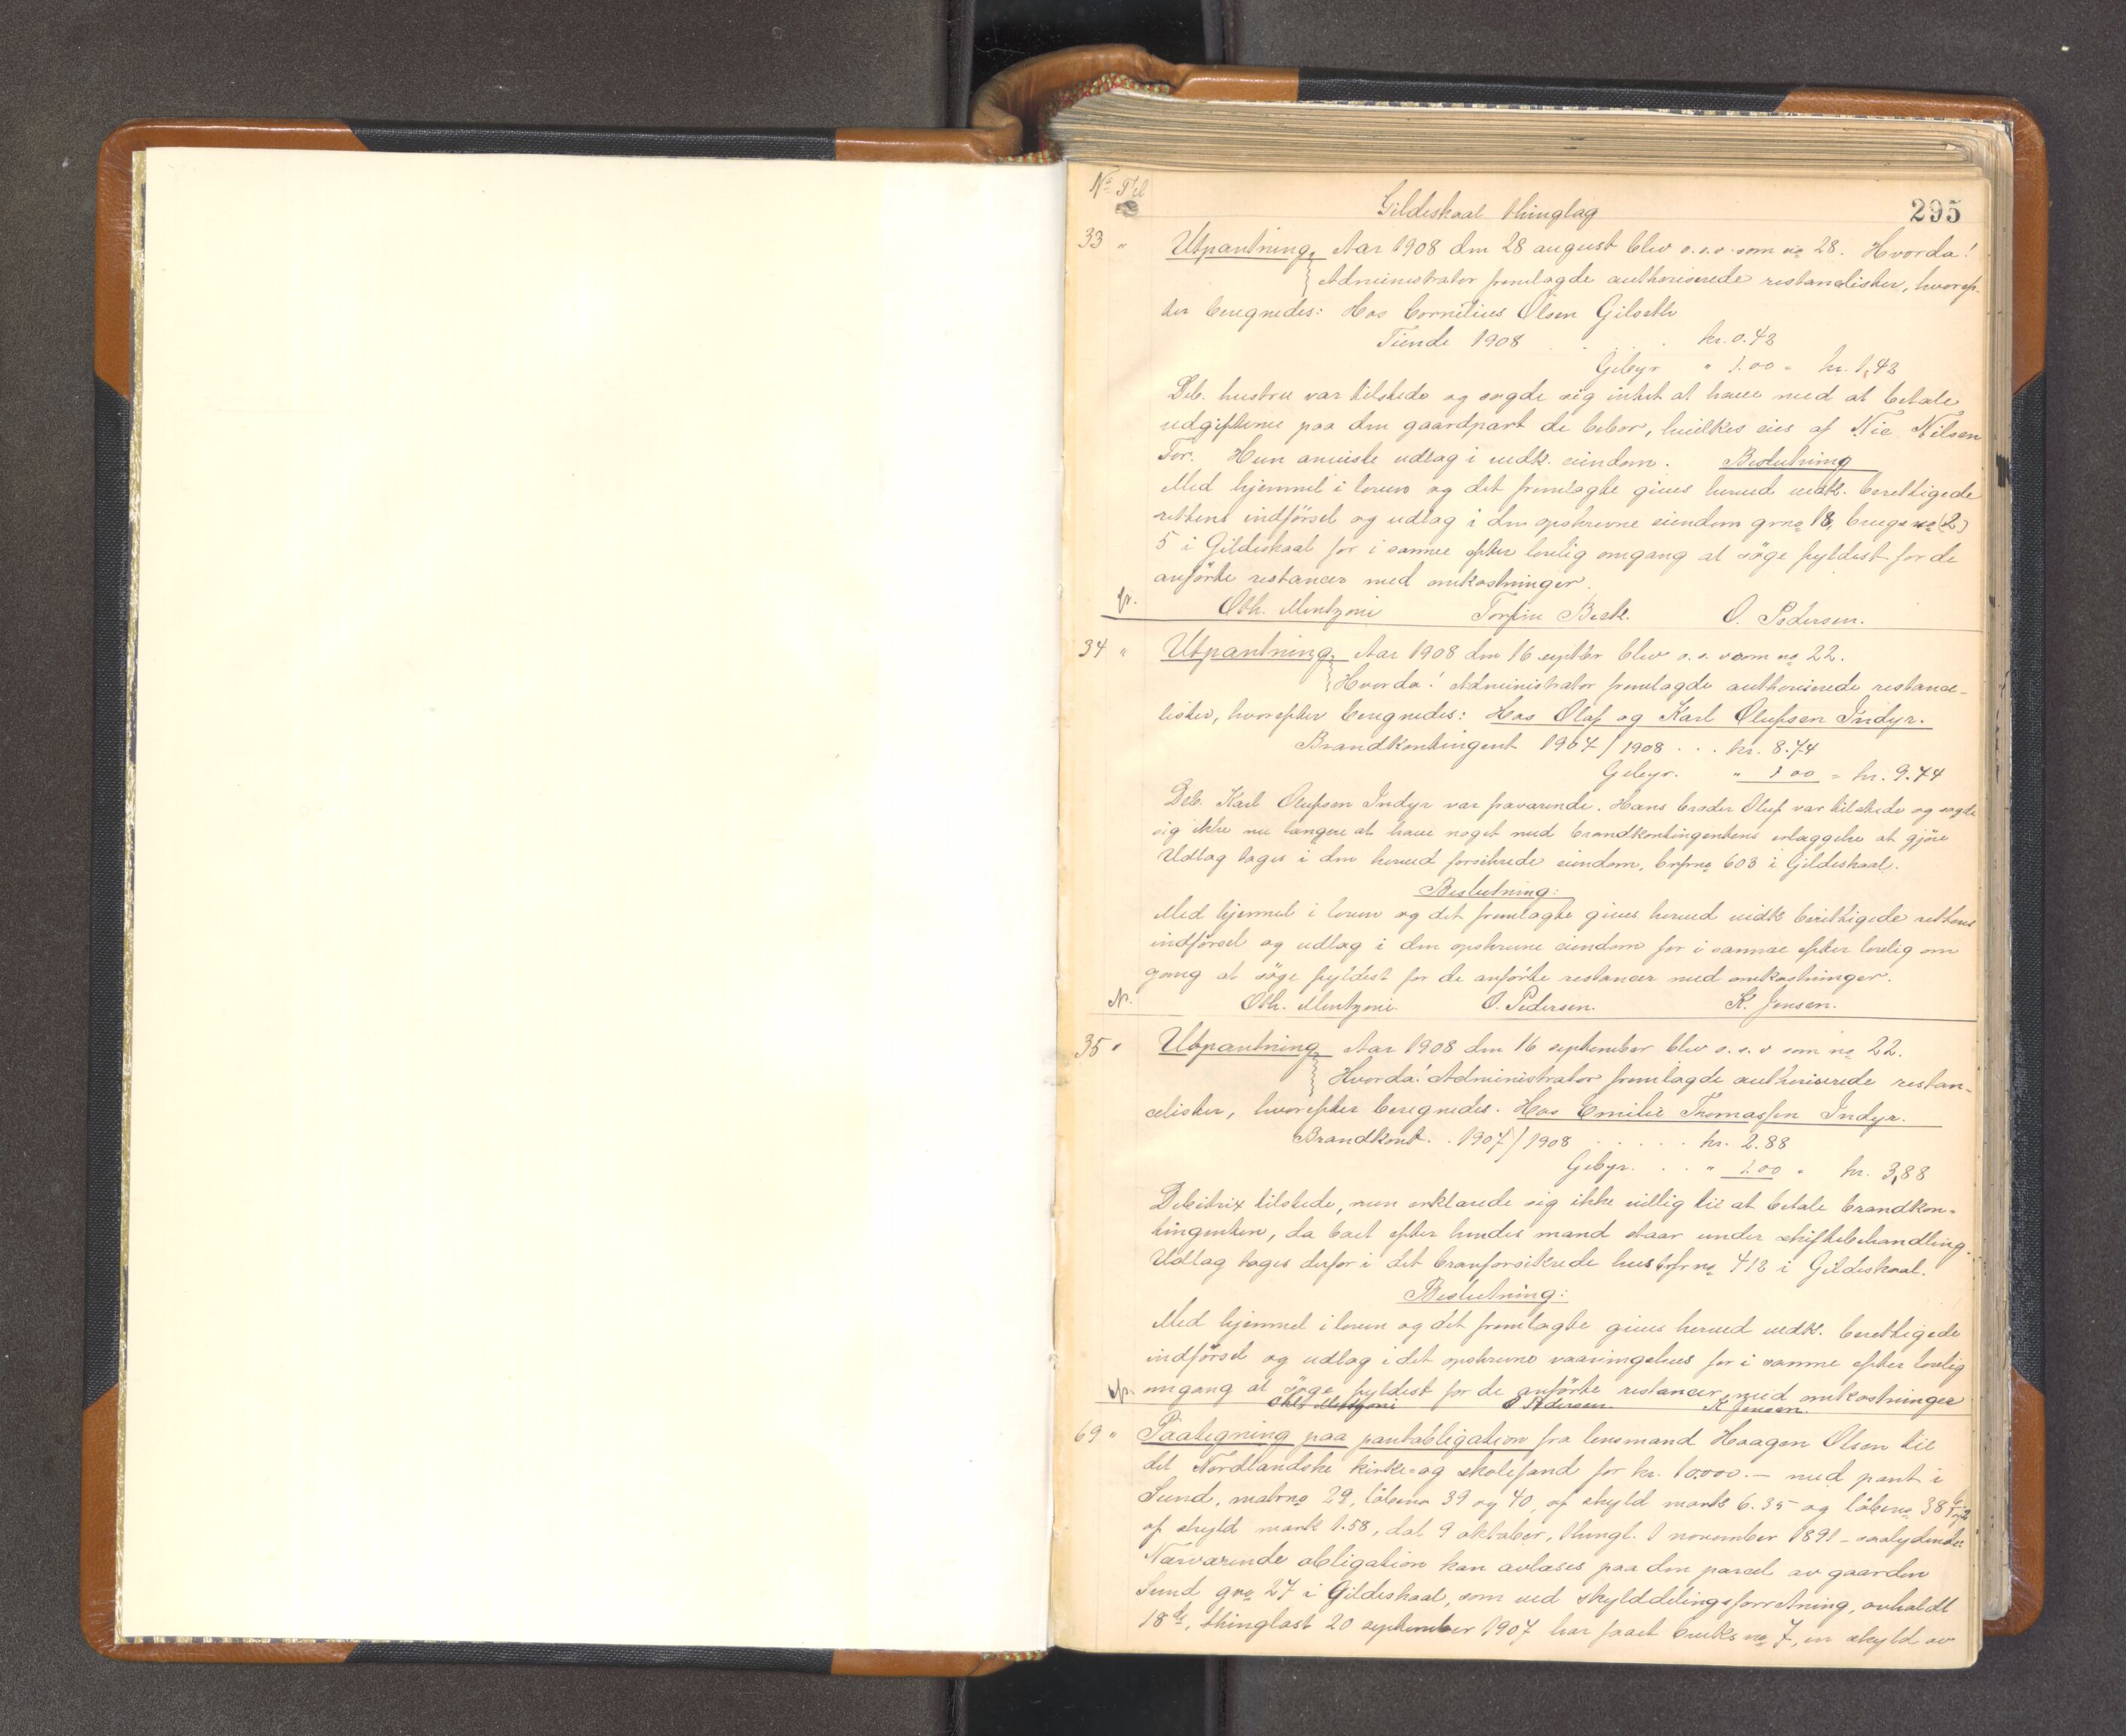 No Fol
Gildeskaal thinglag
295
33 " Utpantning, Aar 1908 den 28 august blev o.s.v. som no 28. Hvorda!
Administrator fremlagde authoriserede restancelister, hvoref-
ter beregnedes: Hos Cornelius Olsen Gilseth
Tiende 1908 . . . kr. 0.43
Gebyr " 1.00 = kr. 1,43
Deb. hustru var tilstede og sagde sig intet at have med at betale
udgifterne paa den gaardpart de bebor, hvilkes eies af Nic. Nilsen
For. Hun anviste udlag i vedk. eiendom. Beslutning
Med hjemmel i loven og det fremlagte gives herved vedk. berettigede
rettens indförsel og udlag i den opskrevne eiendom grno 18, brugsno (2)
5 i Gildeskaal for i samme efter lovlig omgang at söge fyldest for de
anförte restancer med omkostninger.
Oth. Mentzoni Torfin Beck. O. Pedersen.
34 " Utpantning, Aar 1908 den 16 septbr blev o.s.v. som no 22.
Hvorda! Administrator fremlagde authoriserede restance-
lister, hvorefter beregnedes: Hos Olaf og Karl Olufsen Indyr.
Brandkontingent 1907/1908 . . . kr. 8.74
Gebyr. " 1 00 = kr. 9.74
Deb. Karl Olufsen Indyr var fraværende. Hans broder Oluf var tilstede og sagde
sig ikke nu længere at have noget med brandkontingentens erlæggelse at gjöre
Udlag tages i den herved forsikrede eiendom, brfrno 603 i Gildeskaal.
Beslutning:
Med hjemmel i loven og det fremlagte gives herved vedk berettigede rettens
indförsel og udlag i den opskrevne eiendom for i samme efter lovlig om
gang at söge fyldest for de anförte restancer med omkostninger.
Oth. Mentzoni. O. Pedersen. K. Jensen.
35 " Utpantning, Aar 1908 den 16 september blev o.s.v som no 22.
Hvorda! Administrator fremlagde authoriserede restan-
celister, hvorefter beregnedes. Hos Emilie Thomassen Indyr.
Brandkont. . 1907/1908 . . . . . kr. 2.88
Gebyr. . . " 1.00 = kr. 3,88
Debitrix tilstede, men erklærede sig ikke villig til at betale brandkon-
tingenten, da boet efter hendes mand staar under skiftebehandling.
Udlag tages derfor i det branforsikrede hus brfrno 412 i Gildeskaal.
Beslutning:
Med hjemmel i loven og det fremlagte gives herved vedk. berettigede
indförsel og udlag i det opskrevne vaaningshus for i samme efter lovlig
omgang at söge fyldest for de anförte restancer med omkostninger
Oth. Mentzoni O Pedersen K Jensen.
69 " Paategning paa pantobligation fra lensmand Haagen Olsen til
det Nordlandske kirke- og skolefond for kr. 10.000.— med pant i
Sund, matrno 29, löbeno 39 og 40, af skyld mark 6.35 og löbeno 38
af skyld mark 1.58, dat 9 oktober, thingl. 1 november 1891 - saalydende:
Nærværende obligation kan avlæses paa den parcel av gaarden
Sund gno 27 i Gildeskaal, som ved skylddelingsforretning, avholdt
18de, thinglæst 20 september 1907 har faaet bruks no 7, en skyld av